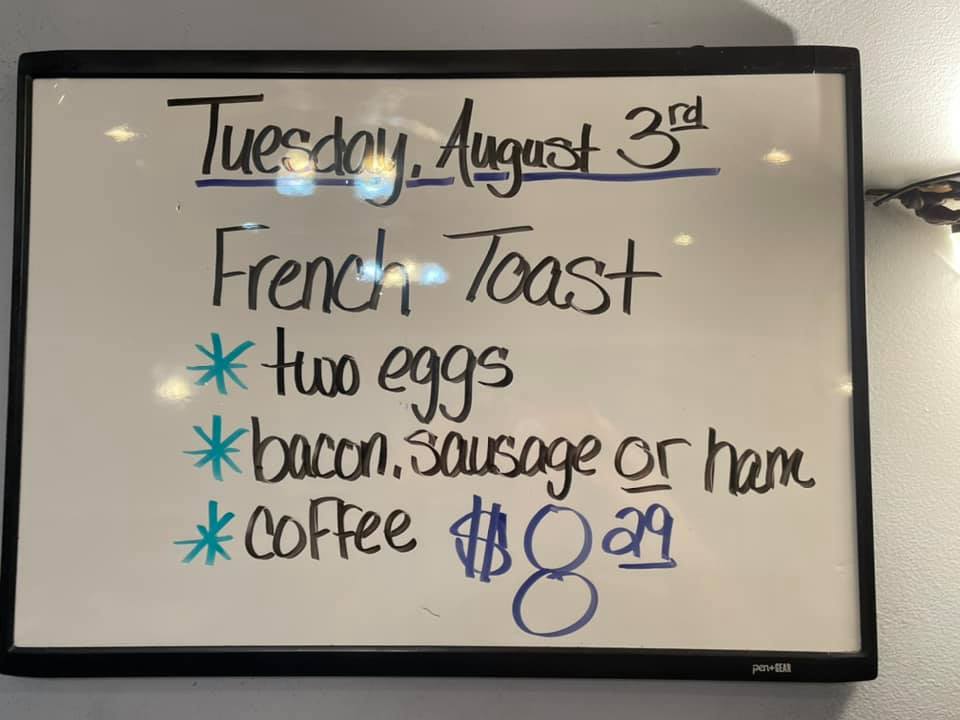 Tuesday, August 3rd
French Toast
* two eggs
* bacon, sausage or ham
* coffee $8 29
pen+GEAR